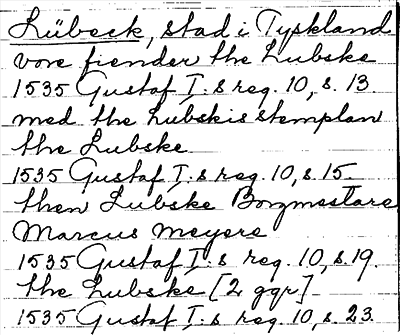 Lübeck, stad i Tyskland
vore fiender the Lubske
1535 Gustaf I:s reg. 10, s. 13.
med the Lubskis stemplan
the Lubske
1535 Gustaf I:s reg. 10, s. 15.
then Lubske Borgmestare
Marcus Meyere
1535 Gustaf I:s reg. 10, s. 19.
the Lubske [2 ggr]
1535 Gustaf I:s reg. 10 s. 23.